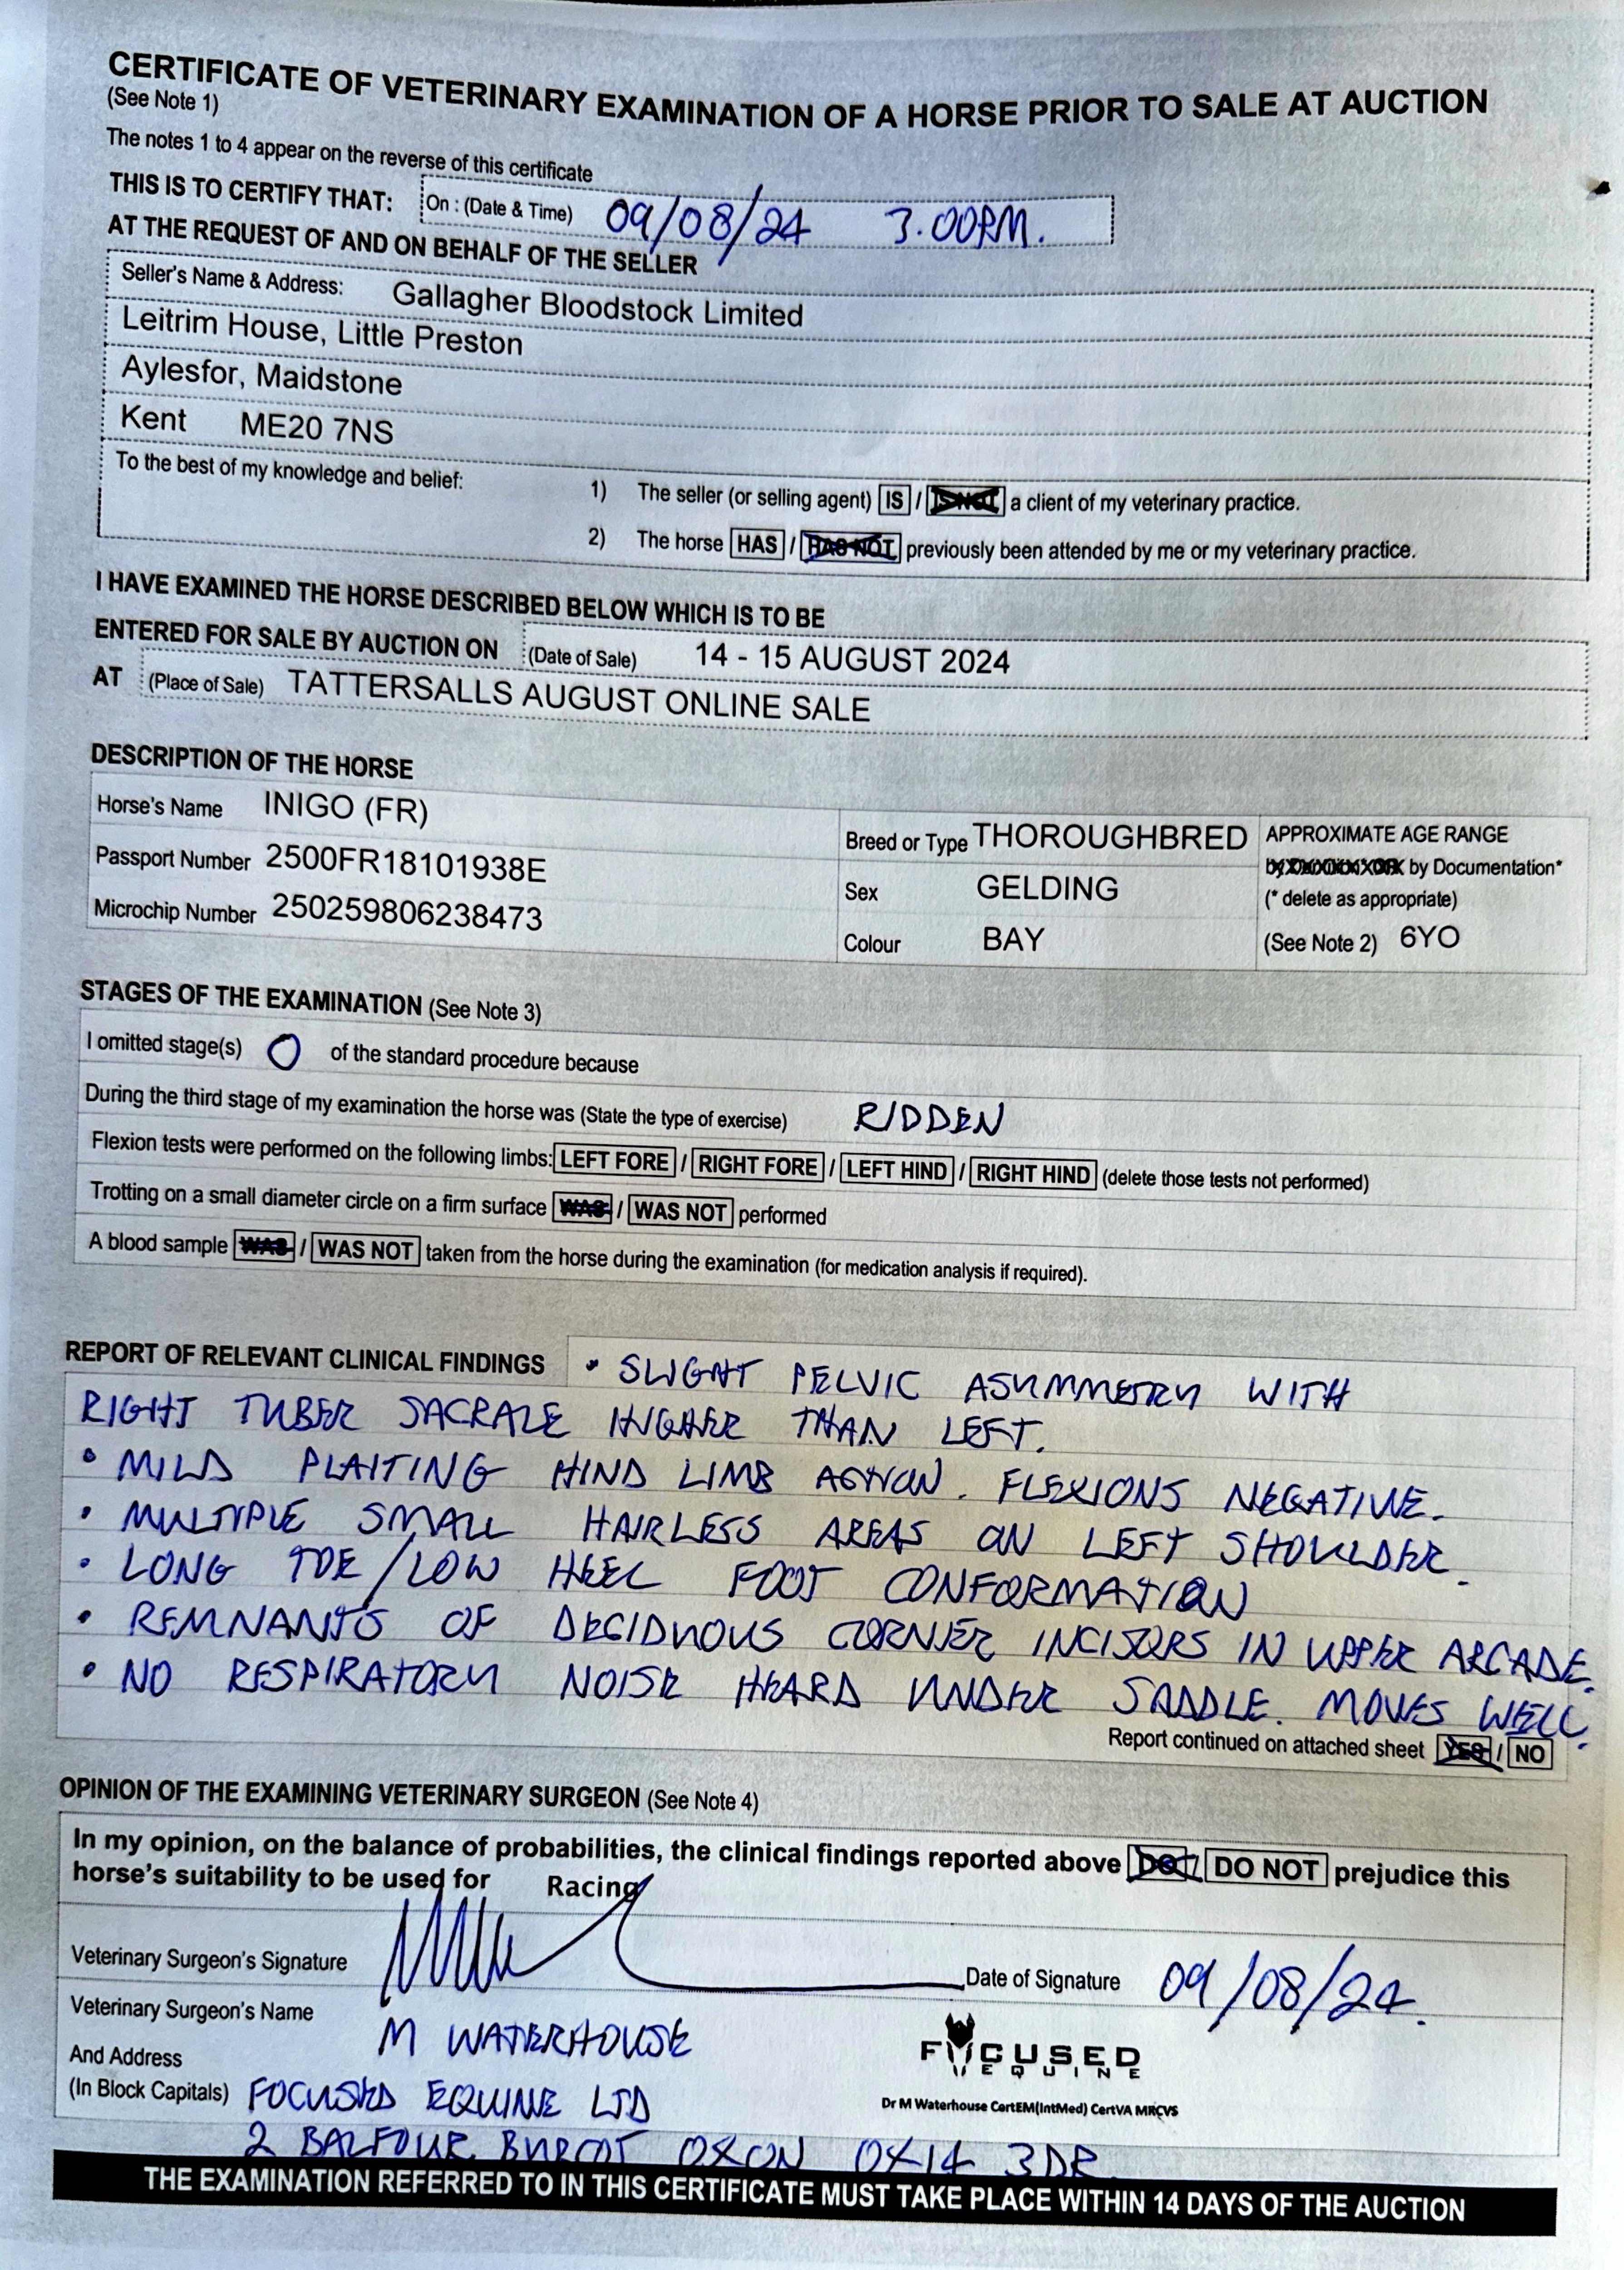 CERTIFICATE OF VETERINARY EXAMINATION OF A HORSE PRIOR TO SALE AT AUCTION
(See Note 1)
The notes 1 to 4 appear on the reverse of this certificate
THIS IS TO CERTIFY THAT: On : (Date & Time) 09/08/24 3.00PM.
AT THE REQUEST OF AND ON BEHALF OF THE SELLER
Seller's Name & Address: Gallagher Bloodstock Limited
Leitrim House, Little Preston
Aylesfor, Maidstone
Kent ME20 7NS
To the best of my knowledge and belief: 1) The seller (or selling agent) IS / IS NOT a client of my veterinary practice.
2) The horse HAS / HAS NOT previously been attended by me or my veterinary practice.
I HAVE EXAMINED THE HORSE DESCRIBED BELOW WHICH IS TO BE
ENTERED FOR SALE BY AUCTION ON (Date of Sale) 14 - 15 AUGUST 2024
AT (Place of Sale) TATTERSALLS AUGUST ONLINE SALE
DESCRIPTION OF THE HORSE
Horse's Name INIGO (FR)
Passport Number 2500FR18101938E
Microchip Number 250259806238473
Breed or Type THOROUGHBRED
Sex GELDING
Colour BAY
APPROXIMATE AGE RANGE
by Documentation*
(* delete as appropriate)
(See Note 2) 6YO
STAGES OF THE EXAMINATION (See Note 3)
I omitted stage(s) O of the standard procedure because
During the third stage of my examination the horse was (State the type of exercise) RIDDEN
Flexion tests were performed on the following limbs: LEFT FORE / RIGHT FORE / LEFT HIND / RIGHT HIND (delete those tests not performed)
Trotting on a small diameter circle on a firm surface WAS / WAS NOT performed
A blood sample WAS / WAS NOT taken from the horse during the examination (for medication analysis if required).
REPORT OF RELEVANT CLINICAL FINDINGS • SLIGHT PELVIC ASYMMETRY WITH
RIGHT TUBER SACRALE HIGHER THAN LEFT.
• MILD PLAITING HIND LIMB ACTION. FLEXIONS NEGATIVE.
• MULTIPLE SMALL HAIRLESS AREAS ON LEFT SHOULDER.
• LONG TOE/LOW HEEL FOOT CONFORMATION
• REMNANTS OF DECIDUOUS CORNER INCISORS IN UPPER ARCADE.
• NO RESPIRATORY NOISE HEARD UNDER SADDLE. MOVES WELL.
Report continued on attached sheet YES / NO
OPINION OF THE EXAMINING VETERINARY SURGEON (See Note 4)
In my opinion, on the balance of probabilities, the clinical findings reported above DO / DO NOT prejudice this
horse's suitability to be used for Racing
Veterinary Surgeon's Signature
Date of Signature 09/08/24.
Veterinary Surgeon's Name M WATERHOUSE
And Address
(In Block Capitals) FOCUSED EQUINE LTD
2 BALFOUR, BURCOT OXON OX14 3DR
FOCUSED
EQUINE
Dr M Waterhouse CertEM(IntMed) CertVA MRCVS
THE EXAMINATION REFERRED TO IN THIS CERTIFICATE MUST TAKE PLACE WITHIN 14 DAYS OF THE AUCTION